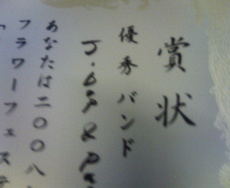 賞状
優秀バンド
あなたは二〇〇八
フラワーフェステ